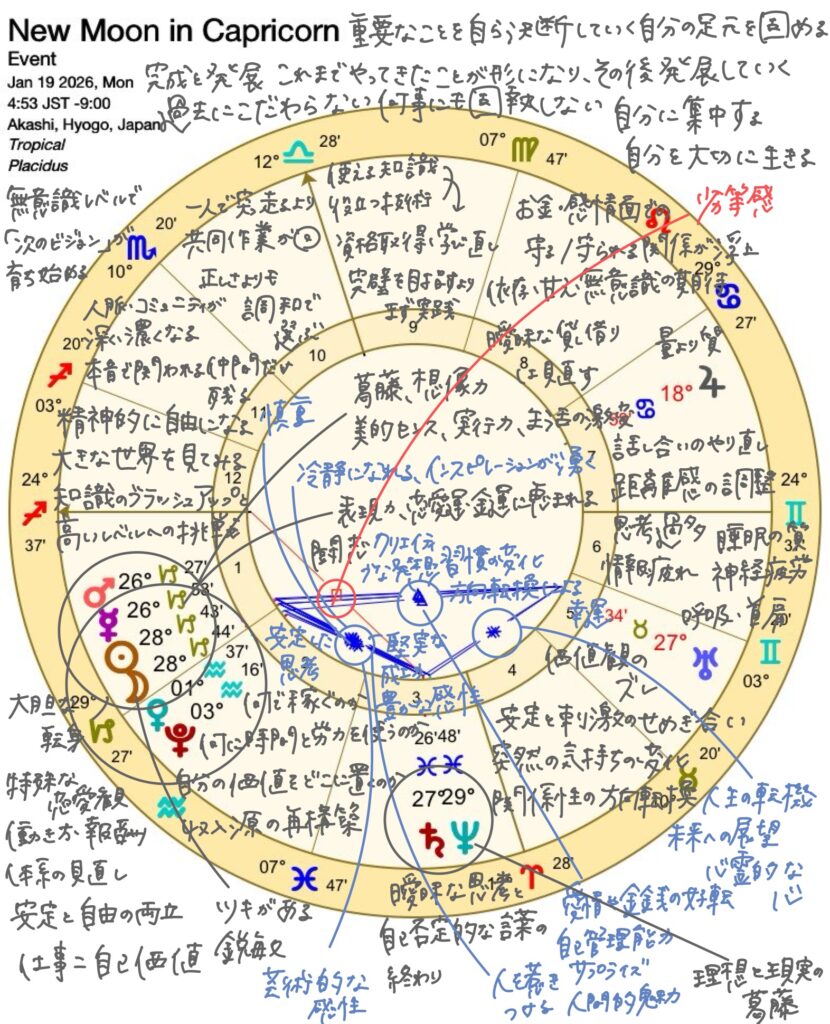 New Moon in Capricorn 重要なことを自ら決断していく自分の足元を固める
Event
Jan 19 2026, Mon
完成と発展 これまでやってきたことが形になり、その後発展していく
4:53 JST -9:00
過去にこだわらない 何事にも固執しない
自分に集中する
Akashi, Hyogo, Japan
Tropical
Placidus
自分を大切に生きる
無意識レベルで
「次のビジョン」が
育ち始める
一人で突走るより
共同作業が
正しさよりも
調和で
選ぶ
使える知識
役立つ技術
資格取得 学び直し
完璧を目指すより
まず実践
お金・感情面での
守る/守られる関係が浮上
依存・甘え・無意識の期待
曖昧な貸し借り
は見直す
劣等感
人脈・コミュニティが
深く濃くなる
本音で関われる仲間だけ
残る
量より質
話し合いのやり直し
距離感の調整
精神的に自由になる
大きな世界を見てみる
知識のブラッシュアップと
高いレベルへの挑戦
慎重
葛藤、想像力
美的センス、実行力、生活の激変
冷静になれる、インスピレーションが湧く
表現力、恋愛運金運に恵まれる
闘志
クリエイティブな発想
習慣の変化
方向転換による
幸運
思考過多
情報疲れ
睡眠の質
神経疲労
呼吸・首肩
安定した
思考
堅実な
成功
豊かな感性
価値観の
ズレ
安定と刺激のせめぎ合い
突然の気持ちの変化
関係性の方向転換
何で稼ぐのか
何に時間と労力を使うのか
自分の価値をどこに置くのか
収入源の再構築
大胆な
転身
特殊な
恋愛観
働き方、報酬
体系の見直し
安定と自由の両立
仕事=自己価値
ツキがある
鋭敏さ
芸術的な
感性
曖昧な思考と
自己否定的な言葉の
終わり
人を惹き
つける
サプライズ
人間的魅力
愛情と金銭の好転
自己管理能力
人生の転機
未来への展望
心霊的な
心
理想と現実の
葛藤
12° 28' 07° 47'
20' 10°
29° 27'
20' 03°
18°
24° 37'
24°
26° 27'
26° 43'
28° 44'
28° 37'
01° 16'
03°
29° 27'
34' 27°
03° 20'
26' 48'
27° 29°
07° 47'
28'
1 2 3 4 5 6 7 8 9 10 11 12